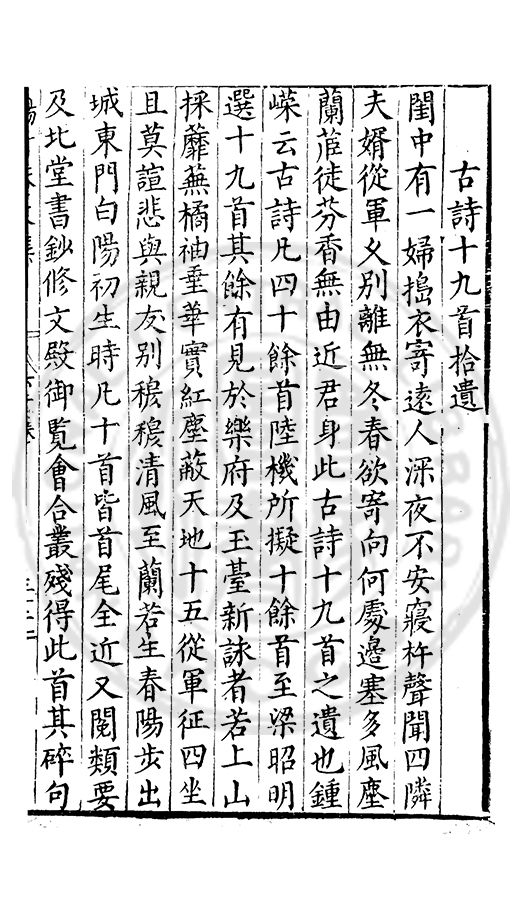 古詩十九首拾遺
閨中有一婦搗衣寄遠人深夜不安寢杵聲聞四隣
夫婿從軍久別離無冬春欲寄向何處邊塞多風塵
蘭茝徒芬香無由近君身此古詩十九首之遺也鍾
嶸云古詩凡四十餘首陸機所擬十餘首至梁昭明
選十九首其餘有見於樂府及玉臺新詠者若上山
採蘼蕪橘柚垂華實紅塵蔽天地十五從軍征四坐
且莫諠悲與親友別穆穆清風至蘭若生春陽步出
城東門白陽初生時凡十首皆首尾全近又閱類要
及北堂書鈔修文殿御覽會合叢殘得此首其碎句